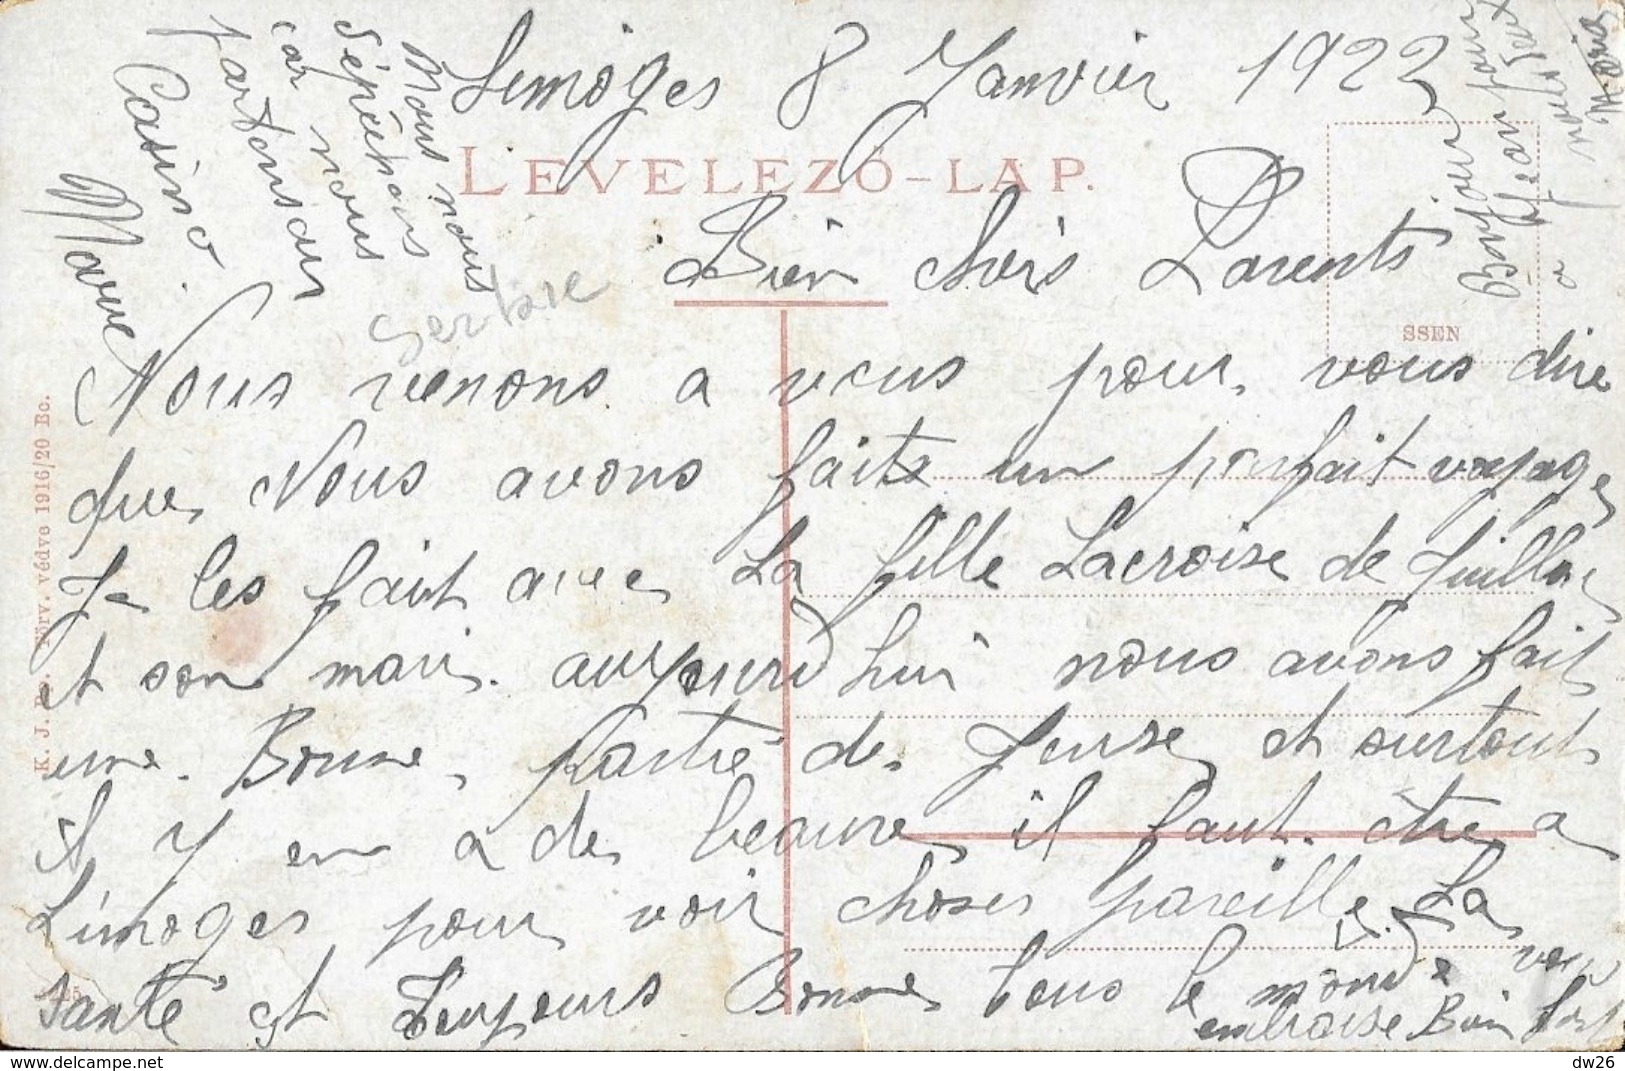 Limoges 8 Janvier 1922
LEVELEZŐ-LAP.
Bien chers Parents
SSEN
Nous venons a vous pour vous dire
que Nous avons faite un parfait voyage
Je les fait avec La fille Lacroise de Juillac
et son mari. aujourd hui nous avons fait
une Bonne Partié de et surtout
il y en a de beaure il faut être a
Limoges pour voir choses pareille. La
Santé est Toujours Bonne tous le monde vous
embrasse Bien fort
Marie
Nous nous
dépêchons
car nous
partons au
Casino
Bonjour
a vous deux
K. J. Bp. Törv. védve 1916/20 Bc.
dw26